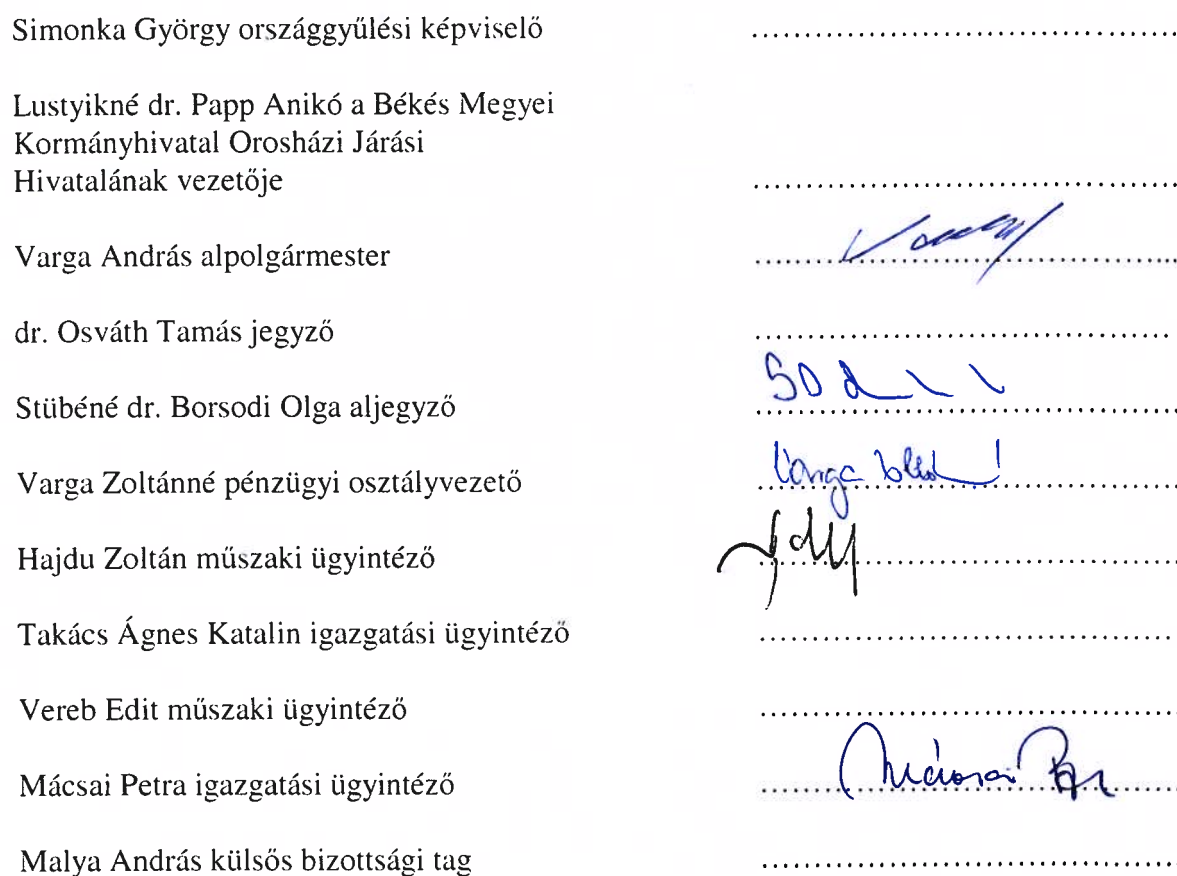 Simonka György országgyűlési képviselő ....................................
Lustyikné dr. Papp Anikó a Békés Megyei
Kormányhivatal Orosházi Járási
Hivatalának vezetője ....................................
Varga András alpolgármester ....................................
dr. Osváth Tamás jegyző ....................................
Stübéné dr. Borsodi Olga aljegyző ....................................
Varga Zoltánné pénzügyi osztályvezető Varga ....................................
Hajdu Zoltán műszaki ügyintéző ....................................
Takács Ágnes Katalin igazgatási ügyintéző ....................................
Vereb Edit műszaki ügyintéző ....................................
Mácsai Petra igazgatási ügyintéző Mácsai ....................................
Malya András külsős bizottsági tag ....................................